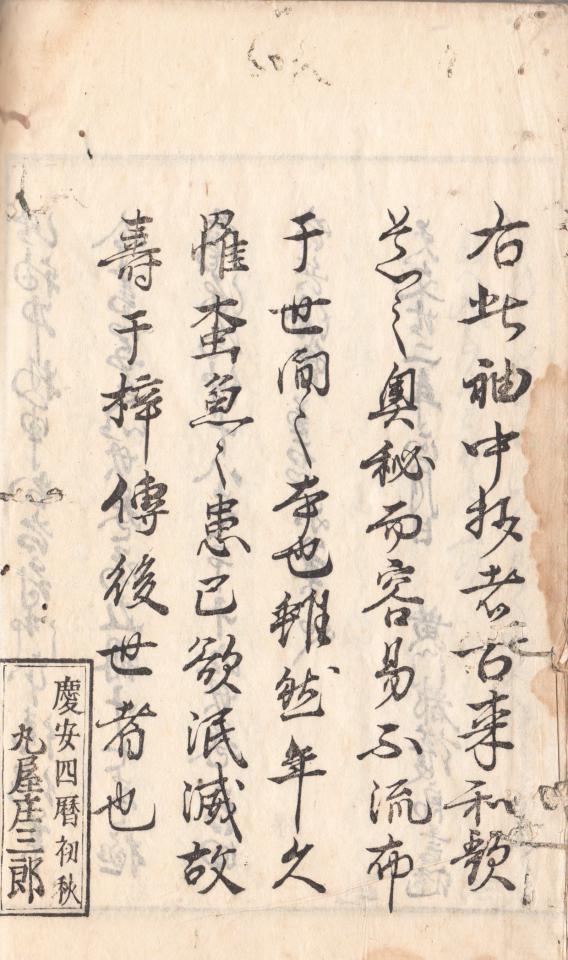 右此袖中抄者古来和歌
道之奥秘而容易不流布
于世間之本也雖然年久
罹蠹魚之患已欲泯滅故
壽于梓傳後世者也
慶安四暦初秋
丸屋庄三郎